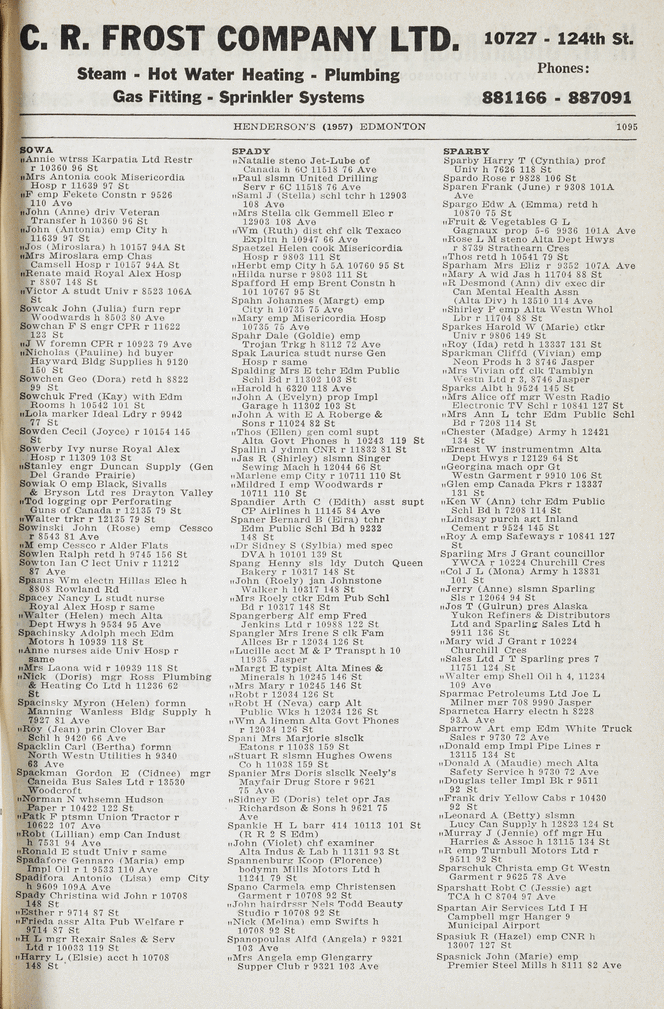 C. R. FROST COMPANY LTD.
10727 - 124th St.
Steam - Hot Water Heating - Plumbing
Gas Fitting - Sprinkler Systems
Phones:
881166 - 887091
HENDERSON'S (1957) EDMONTON 1095
SOWA
"Annie wtrss Karpatia Ltd Restr
r 10360 96 St
"Mrs Antonia cook Misericordia
Hosp r 11639 97 St
"F emp Fekete Constn r 9526
110 Ave
"John (Anne) driv Veteran
Transfer h 10360 96 St
"John (Antonia) emp City h
11639 97 St
"Jos (Miroslara) h 10157 94A St
"Mrs Miroslara emp Chas
Camsell Hosp r 10157 94A St
"Renate maid Royal Alex Hosp
r 8807 148 St
"Victor A studt Univ r 8523 106A
St
Sowcak John (Julia) furn repr
Woodwards h 8503 80 Ave
Sowchan F S engr CPR r 11622
123 St
"J W foremn CPR r 10923 79 Ave
"Nicholas (Pauline) hd buyer
Hayward Bldg Supplies h 9120
150 St
Sowchen Geo (Dora) retd h 8822
99 St
Sowchuk Fred (Kay) with Edm
Rooms h 10542 101 St
"Lola marker Ideal Ldry r 9942
77 St
Sowden Cecil (Joyce) r 10154 145
St
Sowerby Ivy nurse Royal Alex
Hosp r 11309 103 St
"Stanley engr Duncan Supply (Gen
Del Grande Prairie)
Sowiak O emp Black, Sivalls
& Bryson Ltd res Drayton Valley
"Tod logging opr Perforating
Guns of Canada r 12135 79 St
"Walter trkr r 12135 79 St
Sowinski John (Rose) emp Cessco
r 8543 81 Ave
"M emp Cessco r Alder Flats
Sowlen Ralph retd h 9745 156 St
Sowton Ian C lect Univ r 11212
87 Ave
Spaans Wm electn Hillas Elec h
8808 Rowland Rd
Spacey Nancy L studt nurse
Royal Alex Hosp r same
"Walter (Helen) mech Alta
Dept Hwys h 9534 95 Ave
Spachinsky Adolph mech Edm
Motors h 10939 118 St
"Anne nurses aide Univ Hosp r
same
"Mrs Laona wid r 10939 118 St
"Nick (Doris) mgr Ross Plumbing
& Heating Co Ltd h 11236 62
St
Spacinsky Myron (Helen) formn
Manning Wanless Bldg Supply h
7927 81 Ave
"Roy (Jean) prin Clover Bar
Schl h 9420 66 Ave
Spacklin Carl (Bertha) formn
North Westn Utilities h 9340
63 Ave
Spackman Gordon E (Cidnee) mgr
Caneida Bus Sales Ltd r 13530
Woodcroft
"Norman N whsemn Hudson
Paper r 10422 122 St
"Patk F ptsmn Union Tractor r
10622 107 Ave
"Robt (Lillian) emp Can Indust
h 7531 94 Ave
"Ronald E studt Univ r same
Spadafore Gennaro (Maria) emp
Impl Oil r 1 9533 110 Ave
Spadifora Antonio (Lisa) emp City
h 9609 109A Ave
Spady Christina wid John r 10708
148 St
"Esther r 9714 87 St
"Frieda assr Alta Pub Welfare r
9714 87 St
"H L mgr Rexair Sales & Serv
Ltd r 10033 119 St
"Harry L (Elsie) acct h 10708
148 St
SPADY
"Natalie steno Jet-Lube of
Canada h 6C 11518 76 Ave
"Paul slsmn United Drilling
Serv r 6C 11518 76 Ave
"Saml J (Stella) schl tchr h 12903
108 Ave
"Mrs Stella clk Gemmell Elec r
12903 108 Ave
"Wm (Ruth) dist chf clk Texaco
Expltn h 10947 66 Ave
Spaetzel Helen cook Misericordia
Hosp r 9803 111 St
"Herbt emp City h 5A 10760 95 St
"Hilda nurse r 9803 111 St
Spafford H emp Brent Constn h
101 10767 95 St
Spahn Johannes (Margt) emp
City h 10735 75 Ave
"Mary emp Misericordia Hosp
10735 75 Ave
Spahr Dale (Goldie) emp
Trojan Trkg h 8112 72 Ave
Spak Laurica studt nurse Gen
Hosp r same
Spalding Mrs E tchr Edm Public
Schl Bd r 11302 103 St
"Harold h 6320 118 Ave
"John A (Evelyn) prop Impl
Garage h 11302 103 St
"John A with E A Roberge &
Sons r 11024 82 St
"Thos (Ellen) gen coml supt
Alta Govt Phones h 10243 119 St
Spallin J ydmn CNR r 11832 81 St
"Jas R (Shirley) slsmn Singer
Sewing Mach h 12044 66 St
"Marlene emp City r 10711 110 St
"Mildred I emp Woodwards r
10711 110 St
Spandier Arth C (Edith) asst supt
CP Airlines h 11145 84 Ave
Spaner Bernard B (Eira) tchr
Edm Public Schl Bd h 9232
148 St
"Dr Sidney S (Sylbia) med spec
DVA h 10101 139 St
Spang Henny sls ldy Dutch Queen
Bakery r 10317 148 St
"John (Roely) jan Johnstone
Walker h 10317 148 St
"Mrs Roely clk Edm Pub Schl
Bd r 10317 148 St
Spangerberg Alf emp Fred
Jenkins Ltd r 10988 122 St
Spangler Mrs Irene S clk Fam
Allces Br r 12034 126 St
"Lucille acct M & P Transpt h 10
11935 Jasper
"Margt E typist Alta Mines &
Minerals h 10245 146 St
"Mrs Mary r 10245 146 St
"Robt r 12034 126 St
"Robt H (Neva) carp Alt
Public Wks h 12034 126 St
"Wm A linemn Alta Govt Phones
r 12034 126 St
Spani Mrs Marjorie slsclk
Eatons r 11038 159 St
"Stuart R slsmn Hughes Owens
Co h 11038 159 St
Spanier Mrs Doris slsclk Neely's
Mayfair Drug Store r 9621
75 Ave
"Sidney E (Doris) telet opr Jas
Richardson & Sons h 9621 75
Ave
Spankie H L barr 414 10113 101 St
(R R 2 S Edm)
"John (Violet) chf examiner
Alta Indus & Lab h 11311 93 St
Spannenburg Koop (Florence)
bodymn Mills Motors Ltd h
11241 79 St
Spano Carmela emp Christensen
Garment r 10708 92 St
"John hairdrssr Nels Todd Beauty
Studio r 10708 92 St
"Nick (Melina) emp Swifts h
10708 92 St
Spanopoulas Alfd (Angela) r 9321
103 Ave
"Mrs Angela emp Glengarry
Supper Club r 9321 103 Ave
SPARBY
Sparby Harry T (Cynthia) prof
Univ h 7626 118 St
Spardo Rose r 9828 106 St
Sparen Frank (June) r 9308 101A
Ave
Spargo Edw A (Emma) retd h
10870 75 St
"Fruit & Vegetables G L
Gagnaux prop 5-6 9936 101A Ave
"Rose L M steno Alta Dept Hwys
r 8739 Strathearn Cres
"Thos retd h 10541 79 St
Sparham Mrs Eliz r 9352 107A Ave
"Mary A wid Jas h 11704 88 St
"R Desmond (Ann) div exec dir
Can Mental Health Assn
(Alta Div) h 13510 114 Ave
"Shirley P emp Alta Westn Whol
Lbr r 11704 88 St
Sparkes Harold W (Marie) ctkr
Univ r 9806 149 St
"Roy (Ida) retd h 13337 131 St
Sparkman Cliffd (Vivian) emp
Neon Prods h 3 8746 Jasper
"Mrs Vivian off clk Tamblyn
Westn Ltd r 3, 8746 Jasper
Sparks Albt h 9524 145 St
"Mrs Alice off mgr Westn Radio
Electronic TV Schl r 10841 127 St
"Mrs Ann L tchr Edm Public Schl
Bd r 7208 114 St
"Chester (Madge) Army h 12421
134 St
"Ernest W instrumentmn Alta
Dept Hwys r 12129 64 St
"Georgina mach opr Gt
Westn Garment r 9910 106 St
"Glen emp Canada Pkrs r 13337
131 St
"Ken W (Ann) tchr Edm Public
Schl Bd h 7208 114 St
"Lindsay purch agt Inland
Cement r 9524 145 St
"Roy A emp Safeways r 10841 127
St
Sparling Mrs J Grant councillor
YWCA r 10224 Churchill Cres
"Col J L (Mona) Army h 13831
101 St
"Jerry (Anne) slsmn Sparling
Sls r 12064 94 St
"Jos T (Gulrun) pres Alaska
Yukon Refiners & Distributors
Ltd and Sparling Sales Ltd h
9911 136 St
"Mary wid J Grant r 10224
Churchill Cres
"Sales Ltd J T Sparling pres 7
11751 124 St
"Walter emp Shell Oil h 4, 11234
109 Ave
Sparmac Petroleums Ltd Joe L
Milner mgr 708 9990 Jasper
Sparnetca Harry electn h 8228
93A Ave
Sparrow Art emp Edm White Truck
Sales r 9730 72 Ave
"Donald emp Impl Pipe Lines r
13115 134 St
"Donald A (Maudie) mech Alta
Safety Service h 9730 72 Ave
"Douglas teller Impl Bk r 9511
92 St
"Frank driv Yellow Cabs r 10430
92 St
"Leonard A (Betty) slsmn
Lucy Can Supply h 12823 124 St
"Murray J (Jennie) off mgr Hu
Harries & Assoc h 13115 134 St
"R emp Turnbull Motors Ltd r
9511 92 St
Sparschuk Christa emp Gt Westn
Garment r 9625 78 Ave
Sparshatt Robt C (Jessie) agt
TCA h C 8704 97 Ave
Spartan Air Services Ltd I H
Campbell mgr Hanger 9
Municipal Airport
Spasiuk R (Hazel) emp CNR h
13007 127 St
Spasnick John (Marie) emp
Premier Steel Mills h 8111 82 Ave